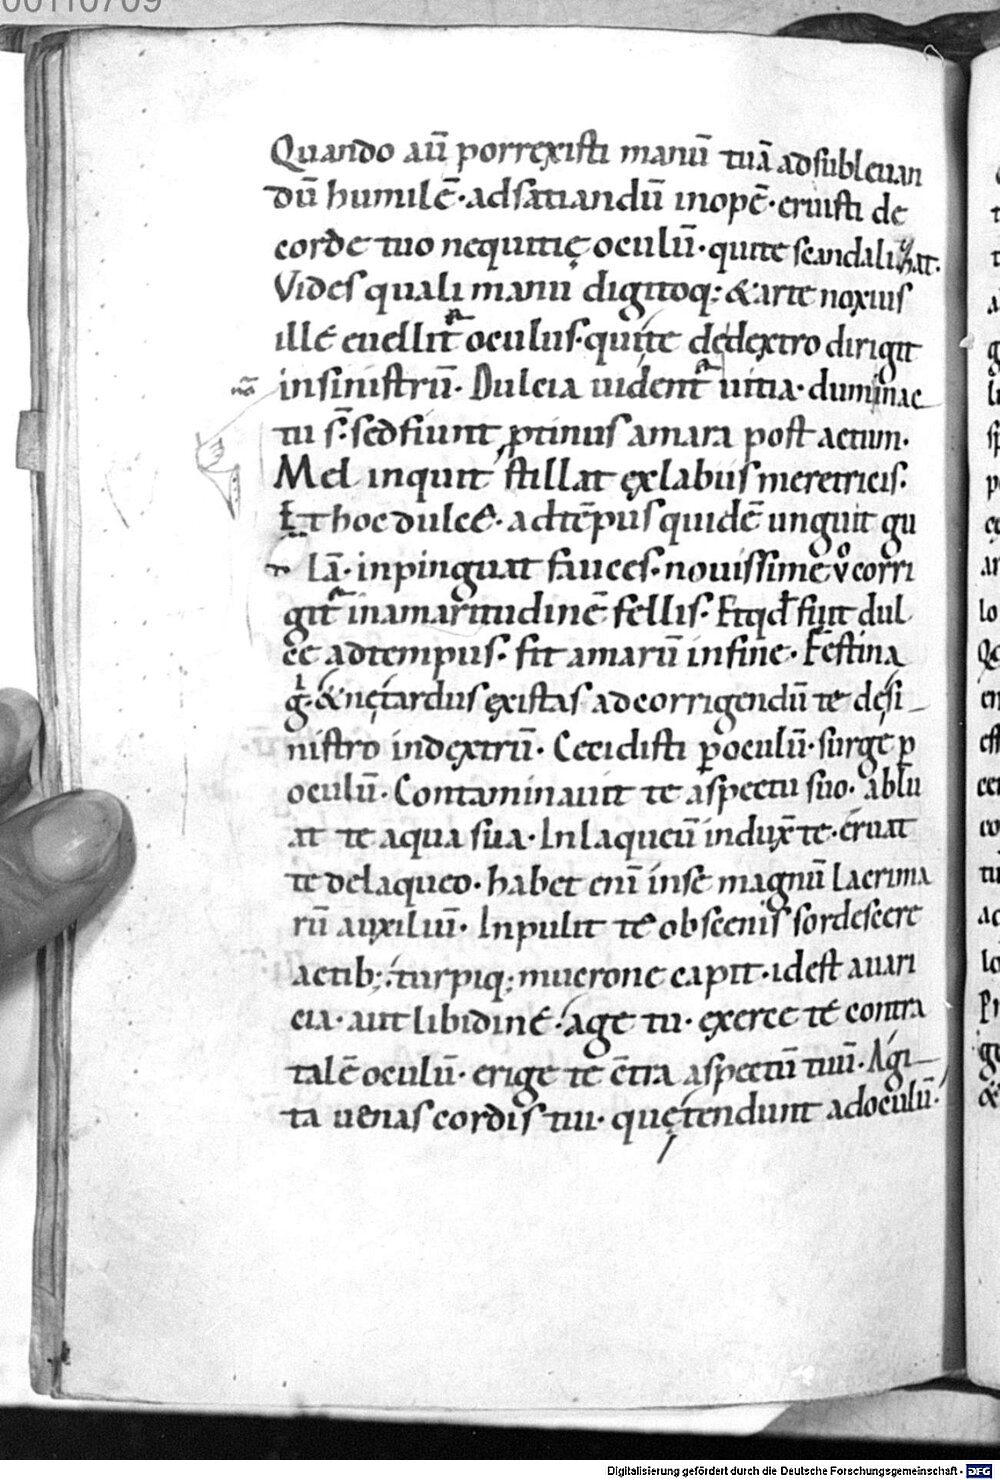 00110709
Quando aū porrexisti manū tuā adsubleuan
dū humilē · adsatiandū inopē · eruisti de
corde tuo nequitię oculū · quite scandalizat.
Vides quali manu digitoq; & arte noxius
ille euellit᷑ oculus · quite dedextro dirigit
insinistrū · Dulcia uident᷑ uitia · dum inac
tu s̄ · sed fiunt ꝓtinus amara post actum ·
Mel inquit stillat exlabiis meretricis ·
Et hoc dulce · adtēpus quidē unguit gu
lā · inpinguat fauces · nouissime v̊ corri
git᷑ inamaritudinē fellis · Et qd̄ fuit dul
ce adtempus · fit amarū infine · Festina
g̊ · & ne tardus existas adcorrigendū te desi
nistro indextrū · Cecidisti ꝑ oculū · surge ꝑ
oculū · Contaminauit te aspectu suo · ablu
at te aqua sua · In laqueū indux̄ te · eruat
te delaqueo · habet enī inse magnū lacrima
rū auxiliū · Inpulit te obscenis sordescere
actib; · turpiq; mucrone capit · idest auari
cia · aut libidine · age tu · exerce te contra
talē oculū · erige te c̄tra aspectū tuū · Agi
ta uenas cordis tui · quę tendunt adoculū ·
Digitalisierung gefördert durch die Deutsche Forschungsgemeinschaft - DFG